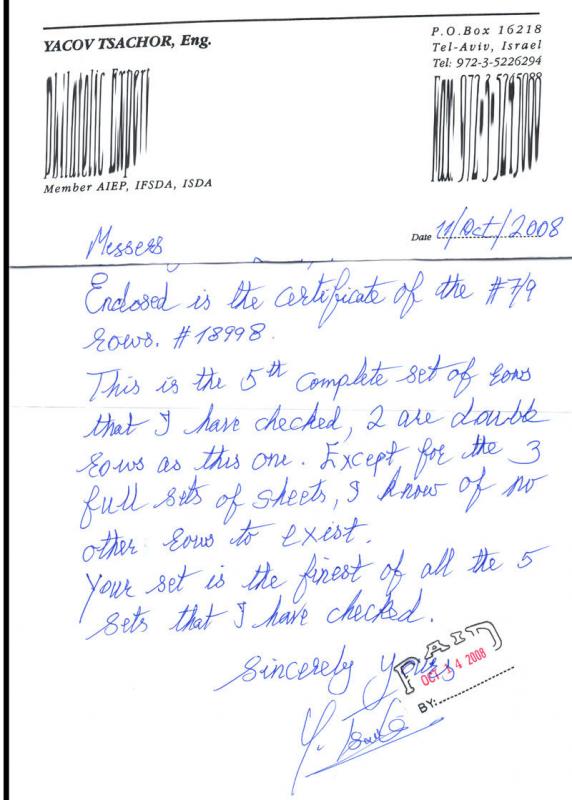 YACOV TSACHOR, Eng.
Philatelic Expert
Member AIEP, IFSDA, ISDA
P.O.Box 16218
Tel-Aviv, Israel
Tel: 972-3-5226294
Fax: 972-3-5245088
Date 11/Oct/2008
Messers
Enclosed is the certificate of the #7/9
rows. #18998.
This is the 5th complete set of rows
that I have checked, 2 are double
rows as this one. Except for the 3
full sets of sheets, I know of no
other rows to exist.
Your set is the finest of all the 5
sets that I have checked.
Sincerely Yours
PAID
OCT 14 2008
BY: